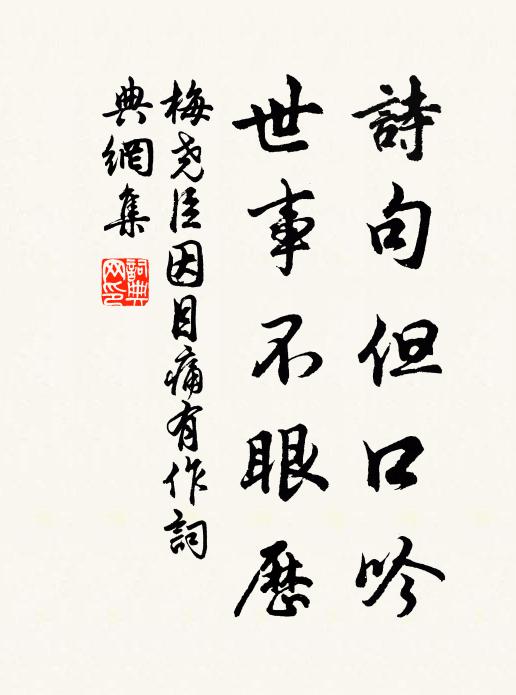 詩句但口吟
世事不眼歷
梅堯臣因目痛有作詞
典網集
詞典
网印